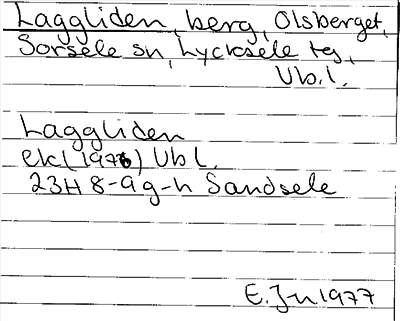 Laggliden, berg, Olsberget,
Sorsele sn, Lycksele tg,
Vb.l.
Laggliden
ek (1976) Vb l.
23H 8-9 g-h Sandsele
E. Jn 1977